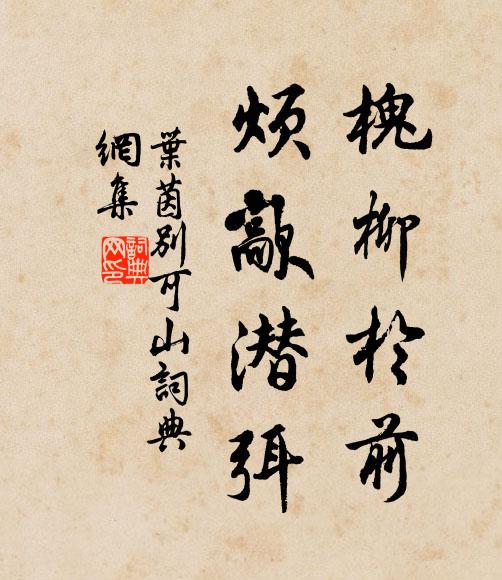 槐柳於前
烦歊潜弭
葉茵別可山詞典
網集
詞典
网印